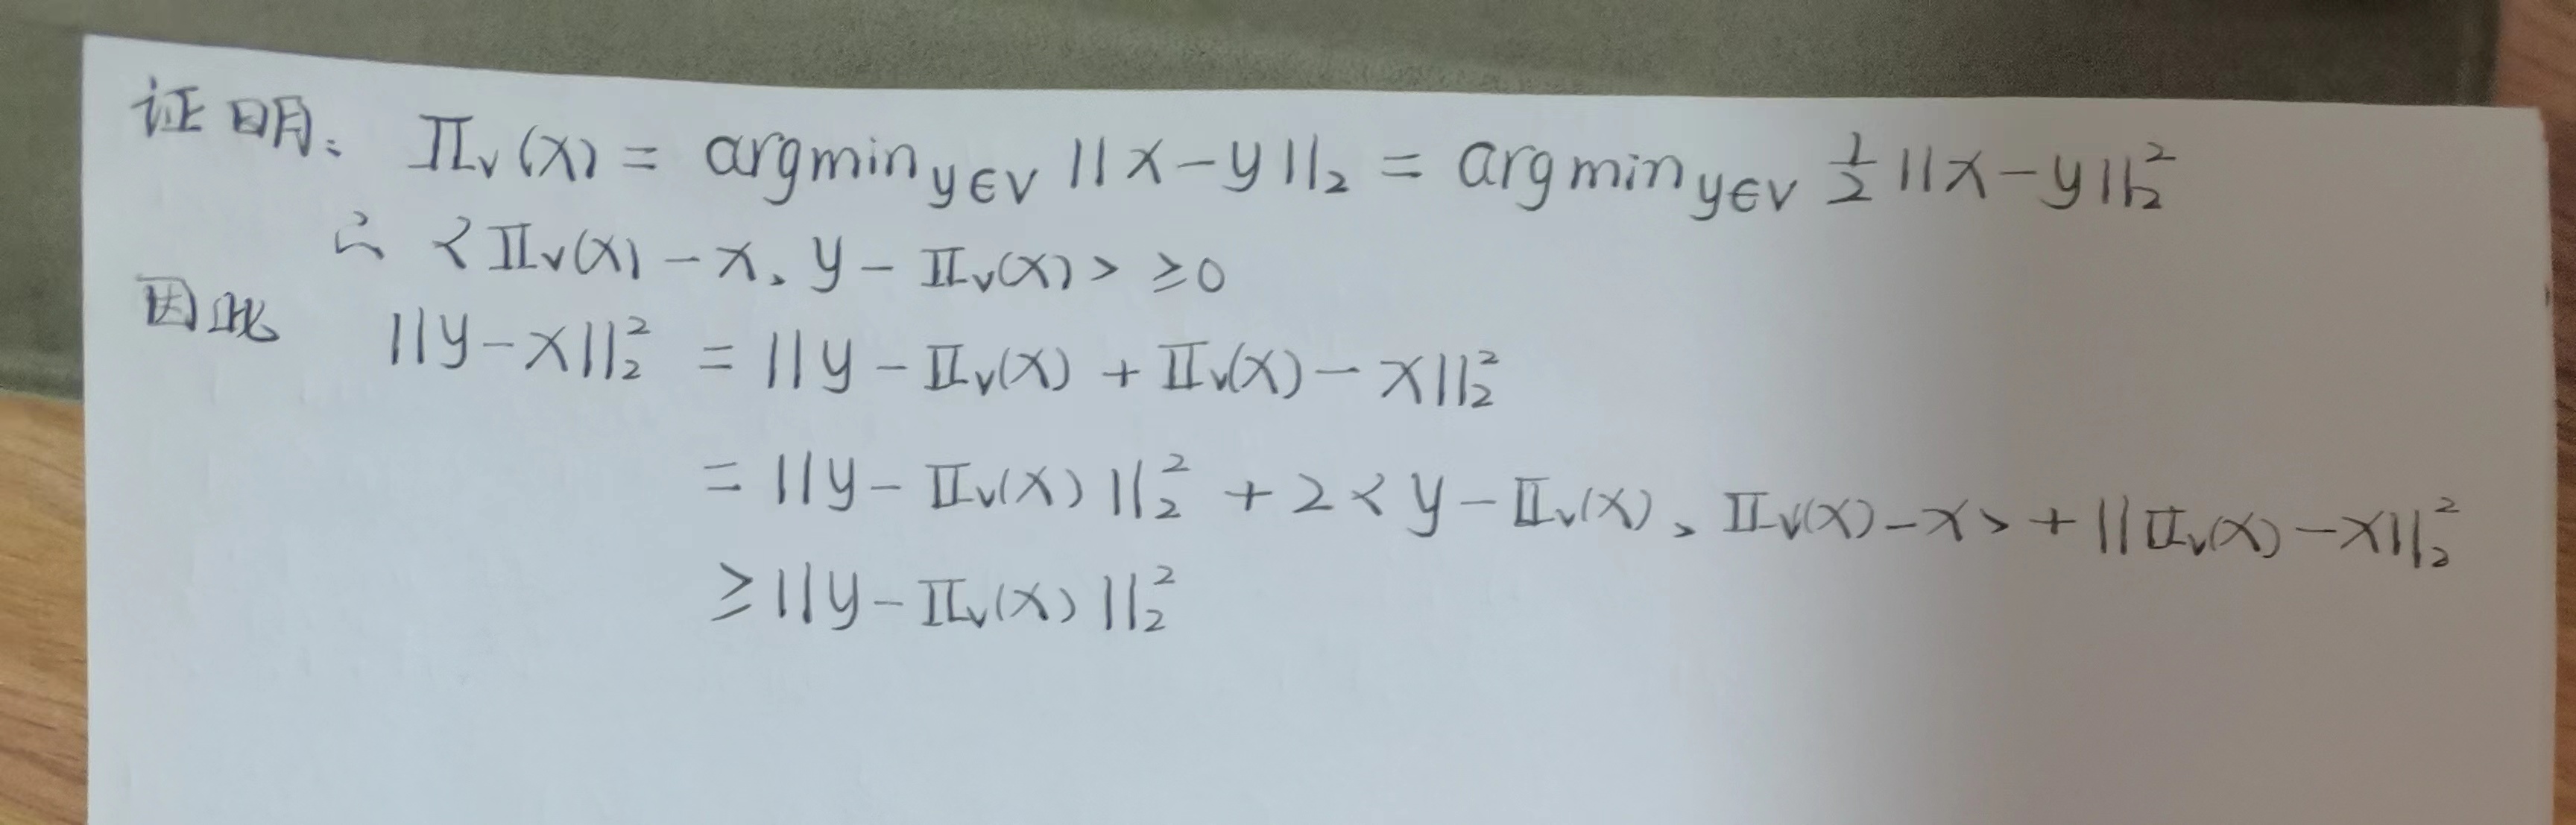 证明: Π_V(x) = argmin_{y∈V} ||x-y||_2 = argmin_{y∈V} 1/2 ||x-y||_2^2
∴ <Π_V(x) - x, y - Π_V(x)> ≥0
因此 ||y-x||_2^2 = ||y - Π_V(x) + Π_V(x) - x||_2^2
= ||y - Π_V(x)||_2^2 + 2<y - Π_V(x), Π_V(x) - x> + ||Π_V(x) - x||_2^2
≥ ||y - Π_V(x)||_2^2